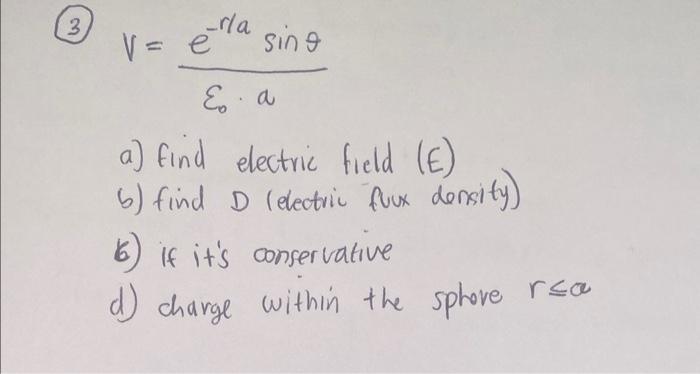 3
V = e^{-r/a} sin θ / ε₀ · a
a) find electric field (E)
b) find D (electric flux density)
c) if it's conservative
d) charge within the sphere r≤a